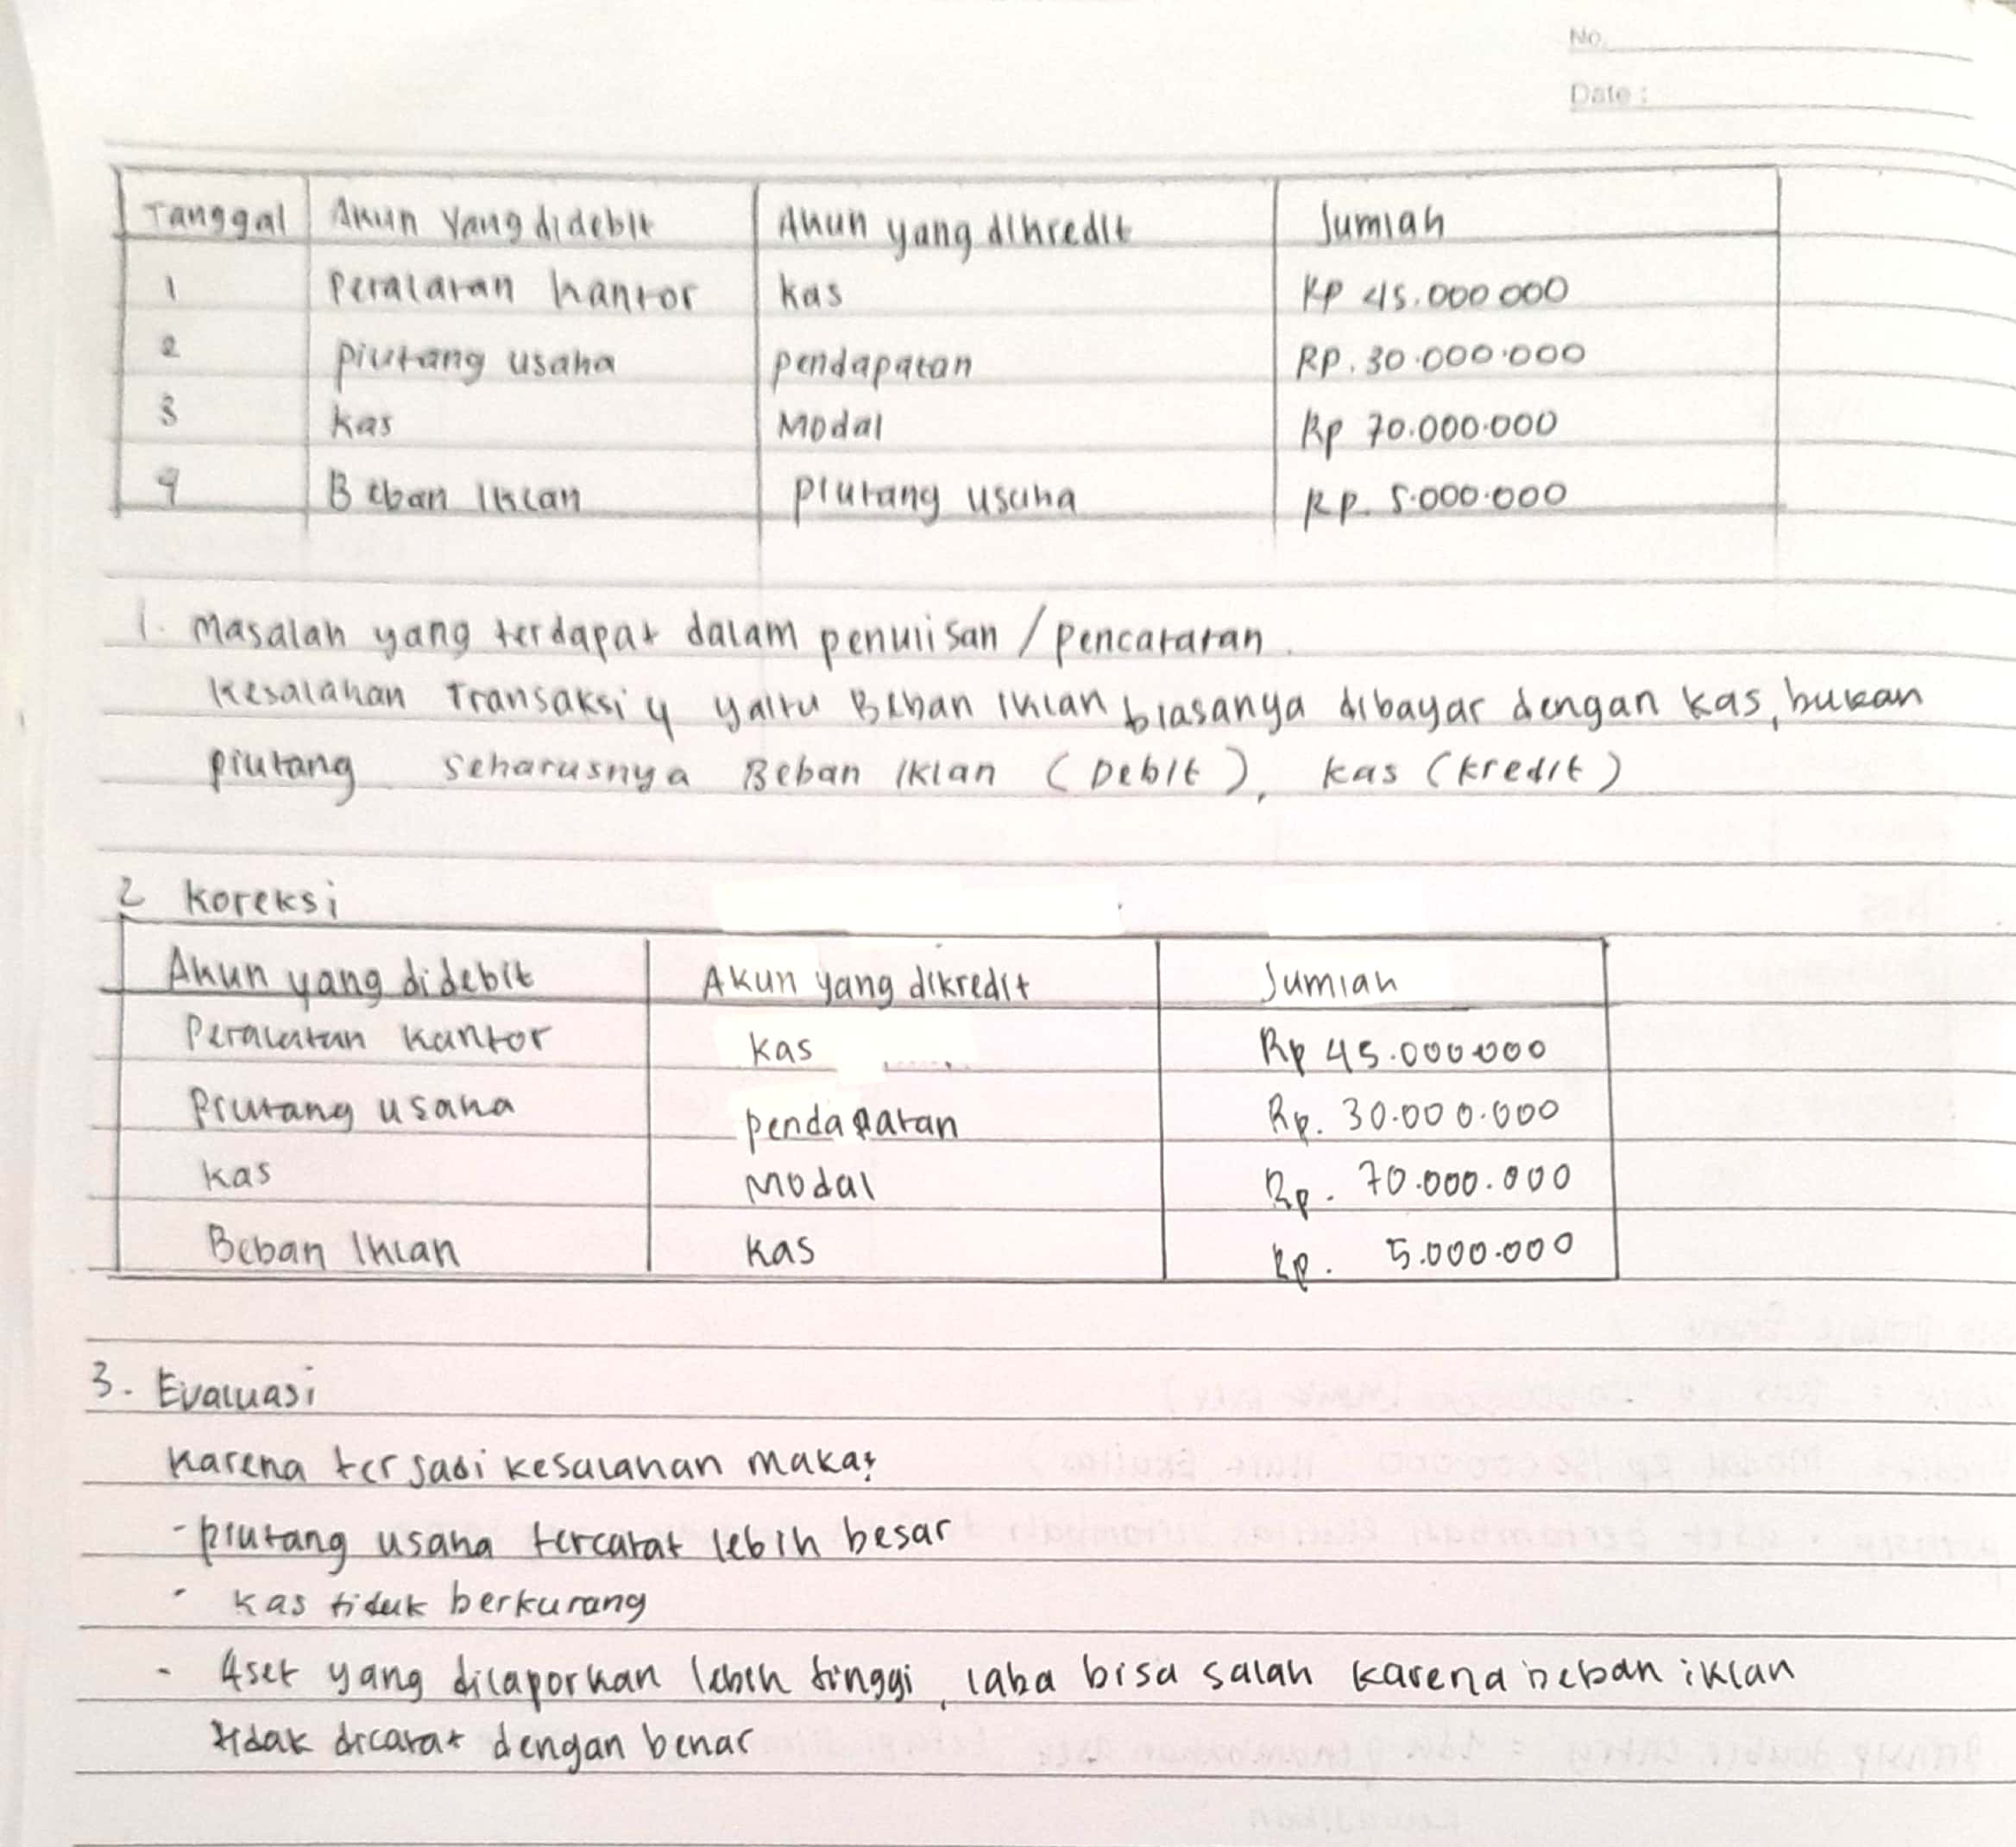 No.
Date :
Tanggal Akun yang didebit Akun yang dikredit Jumlah
1 Peralatan kantor kas Rp 45.000 000
2 piutang usaha pendapatan Rp. 30.000.000
3 kas Modal Rp 70.000.000
4 Beban Iklan piutang usaha Rp. 5.000.000
1. Masalah yang terdapat dalam penulisan / pencatatan.
Kesalahan Transaksi 4 yaitu Beban Iklan biasanya dibayar dengan kas, bukan
piutang seharusnya Beban Iklan (Debit), kas (kredit)
2 Koreksi
Akun yang didebit Akun yang dikredit Jumlah
Peralatan kantor kas Rp 45.000.000
Piutang usaha pendapatan Rp. 30.000.000
kas Modal Rp. 70.000.000
Beban Iklan kas Rp. 5.000.000
3. Evaluasi
Karena terjadi kesalahan maka:
- piutang usaha tercatat lebih besar
- kas tiduk berkurang
- Aset yang dilaporkan lebih tinggi, laba bisa salah karena beban iklan
tidak dicatat dengan benar